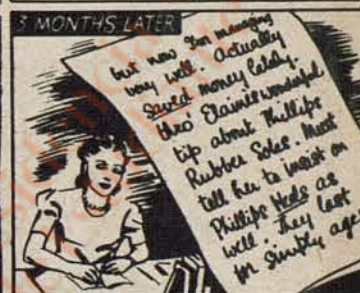 3 MONTHS LATER
but now I'm managing
very well. Actually
saved money lately.
thro' Elaine's wonderful
tip about Phillips
Rubber Soles. Must
tell her to insist on
Phillips Heels as
well. They last
for simply age